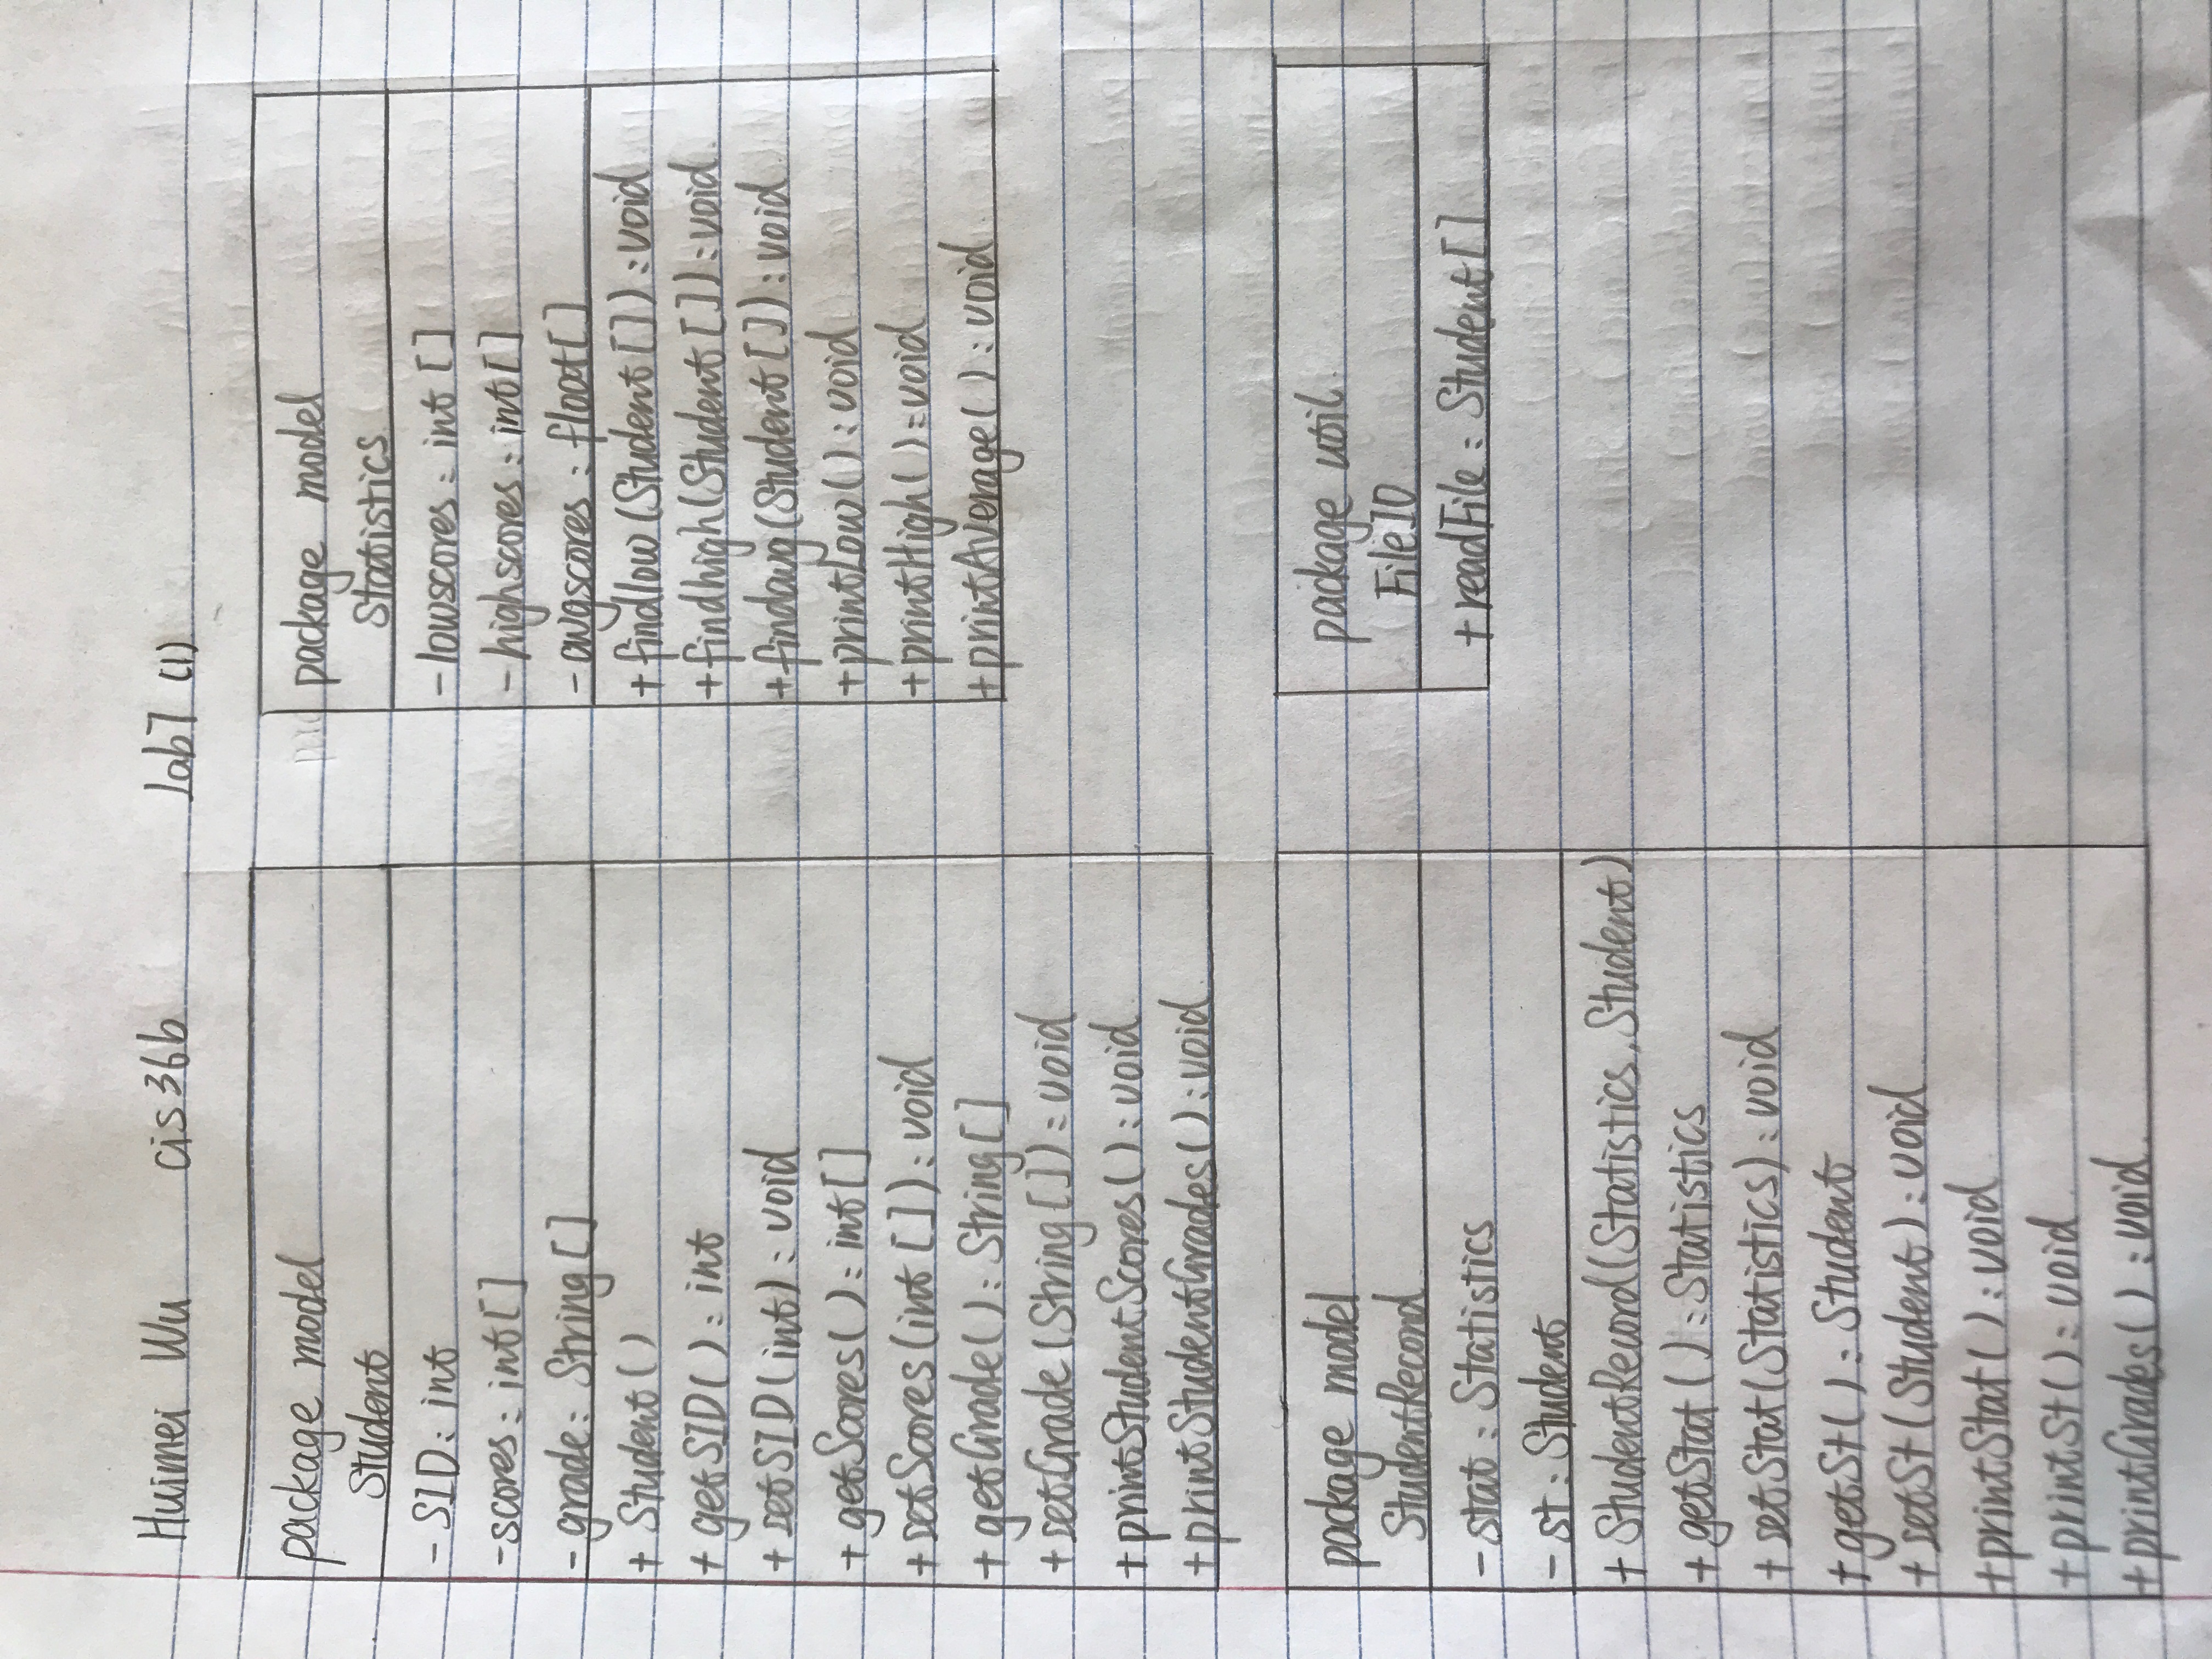 Huimei Wu cis36b lab7 (1)
package model
Student
- SID: int
- scores: int[]
- grade: String[]
+ Student()
+ getSID(): int
+ setSID(int): void
+ getScores(): int[]
+ setScores(int[]): void
+ getGrade(): String[]
+ setGrade(String[]): void
+ printStudentScores(): void
+ printStudentGrades(): void
package model
Statistics
- lowscores: int[]
- highscores: int[]
- avgscores: float[]
+ findlow(Student[]): void
+ findhigh(Student[]): void
+ findavg(Student[]): void
+ printLow(): void
+ printHigh(): void
+ printAverage(): void
package model
StudentRecord
- stat: Statistics
- st: Student
+ StudentRecord(Statistics, Student)
+ getStat(): Statistics
+ setStat(Statistics): void
+ getSt(): Student
+ setSt(Student): void
+ printStat(): void
+ printSt(): void
+ printGrades(): void
package util
FileIO
+ readFile: Student[]